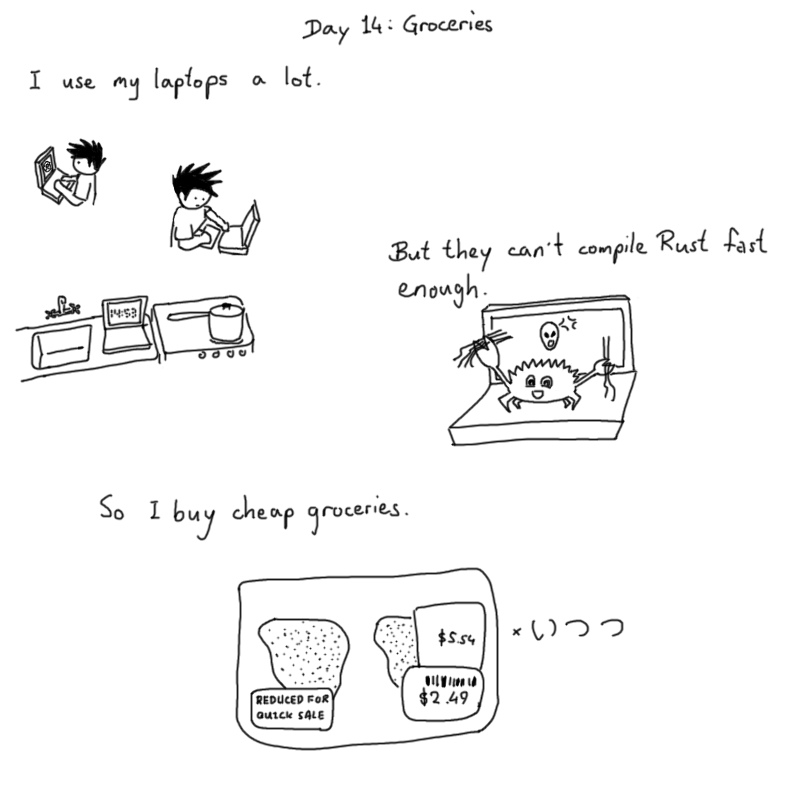 Day 14: Groceries
I use my laptops a lot.
14:53
But they can't compile Rust fast
enough.
So I buy cheap groceries.
$5.54
× いつつ
$2.49
REDUCED FOR
QUICK SALE